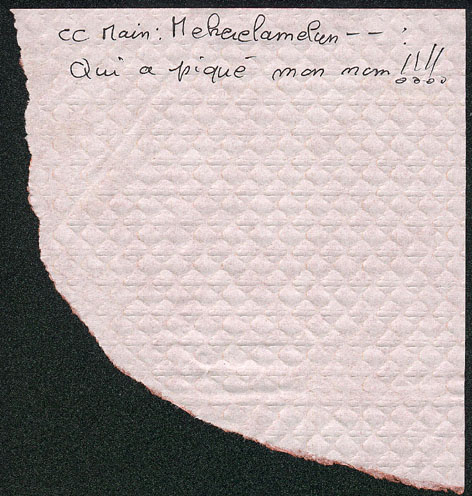 cc Main: Mekaelamelun -- :
Qui a piqué mon nom !!!!